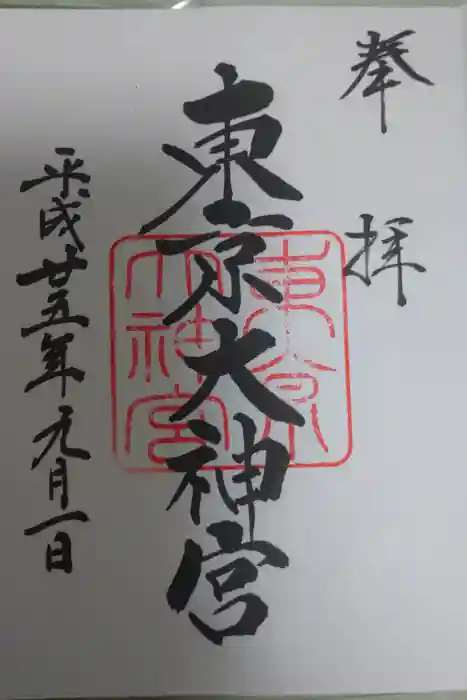 奉拝
東京大神宮
東京
大神宮
平成廿五年九月一日